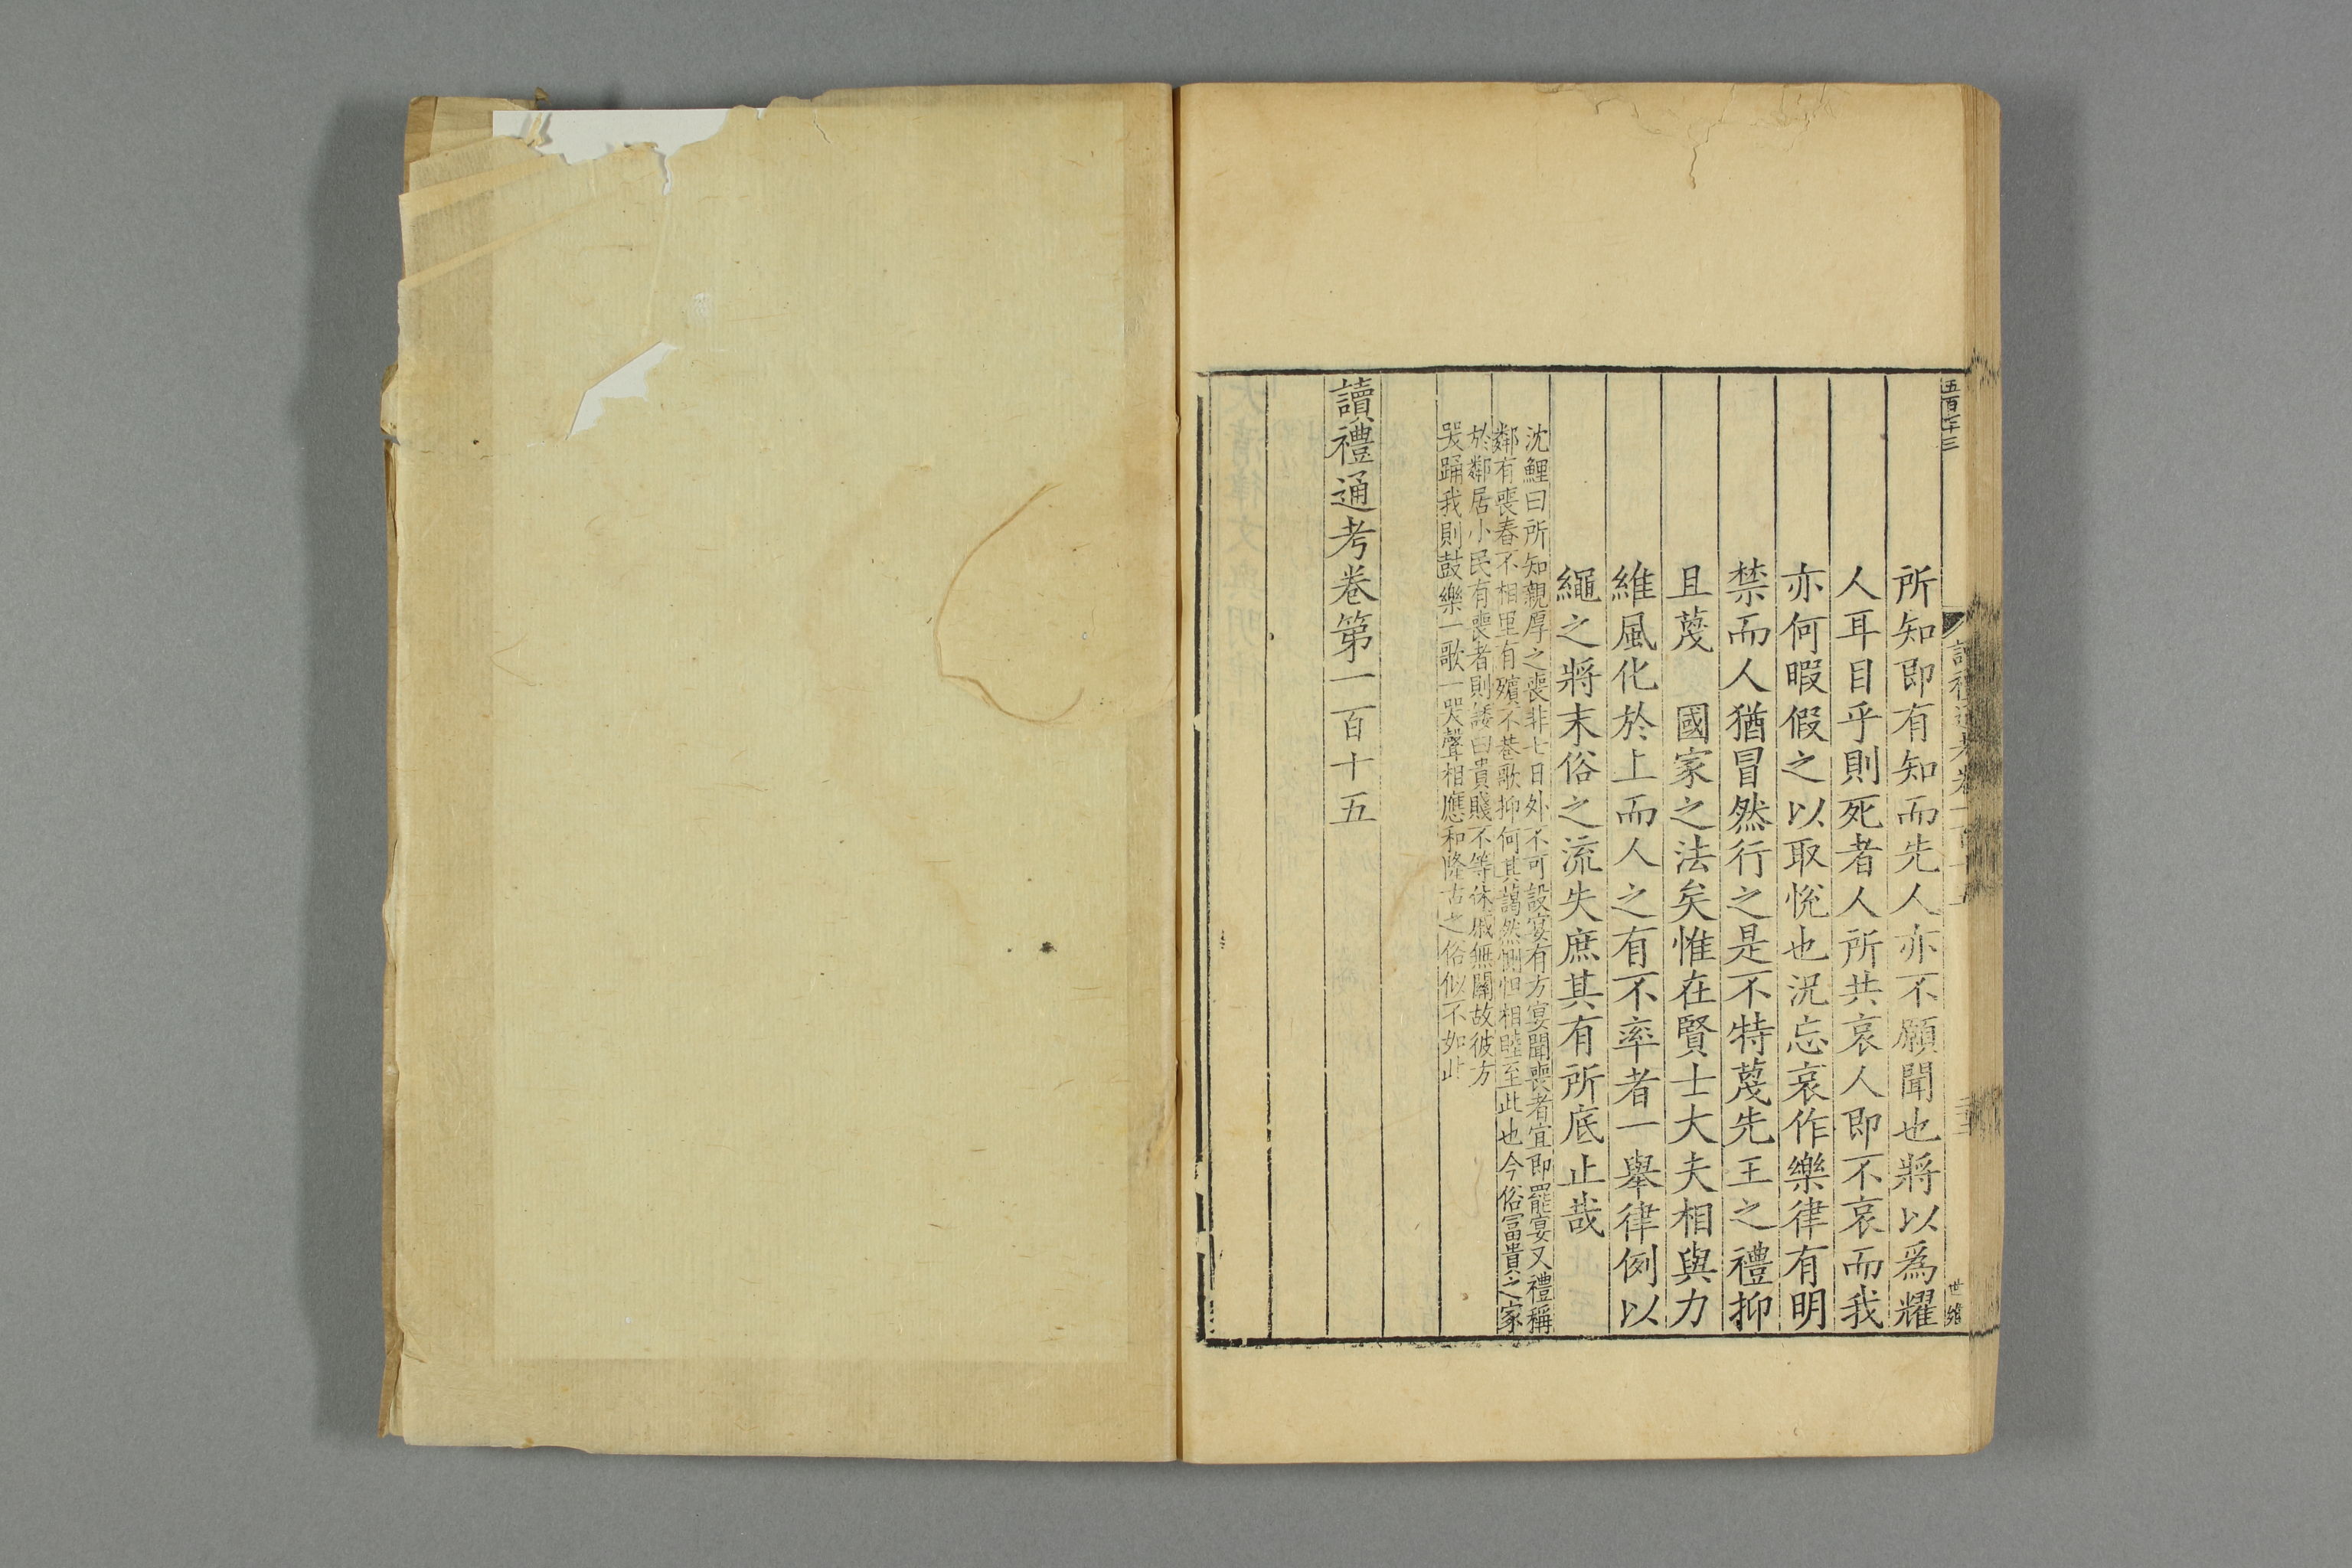 五百七十三
世䋺
所知即有知而先人亦不願聞也將以爲耀
人耳目乎則死者人所共哀人即不哀而我
亦何暇假之以取悅也況忘哀作樂律有明
禁而人猶冒然行之是不特蔑先王之禮抑
且蔑　國家之法矣惟在賢士大夫相與力
維風化於上而人之有不率者一舉律例以
繩之將末俗之流失庶其有所底止哉
沈鯉曰所知親厚之喪非七日外不可設宴有方宴聞喪者宜即罷宴又禮稱
鄰有喪舂不相里有殯不巷歌抑何其藹然惻怛相睦至此也今俗富貴之家
於鄰居小民有喪者則諉曰貴賤不等休戚無關故彼方
哭踊我則鼓樂一歌一哭聲相應和隆古之俗似不如此
讀禮通考卷第一百十五